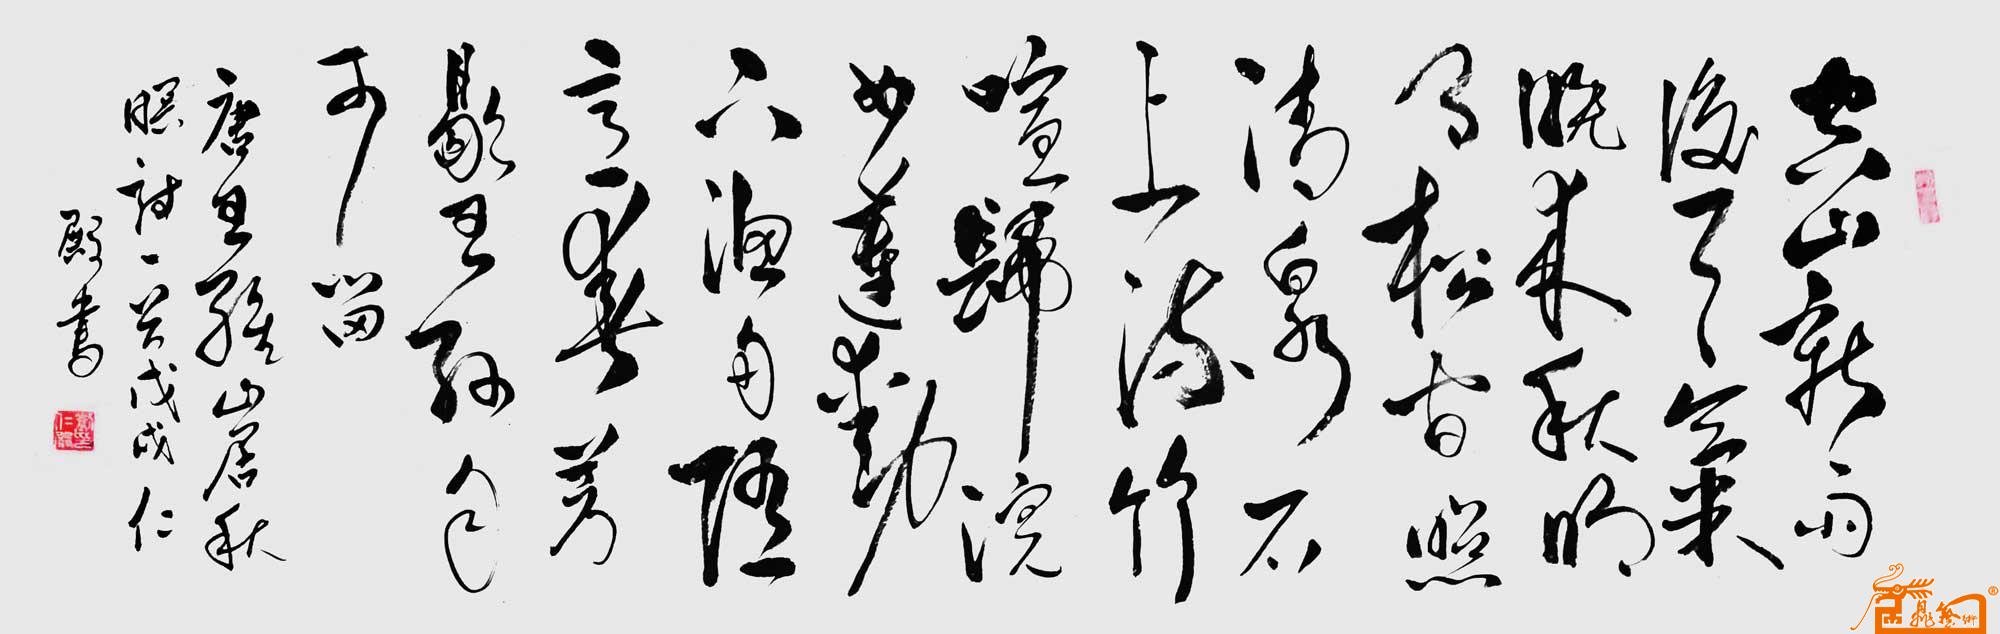 空山新雨
後天氣
晚來秋明
月松间照
清泉石
上流竹
喧歸浣
女蓮動
下漁舟隨
意春芳
歇王孫自
可留
唐王維山居秋
暝詩一首戊戌仁
殿書